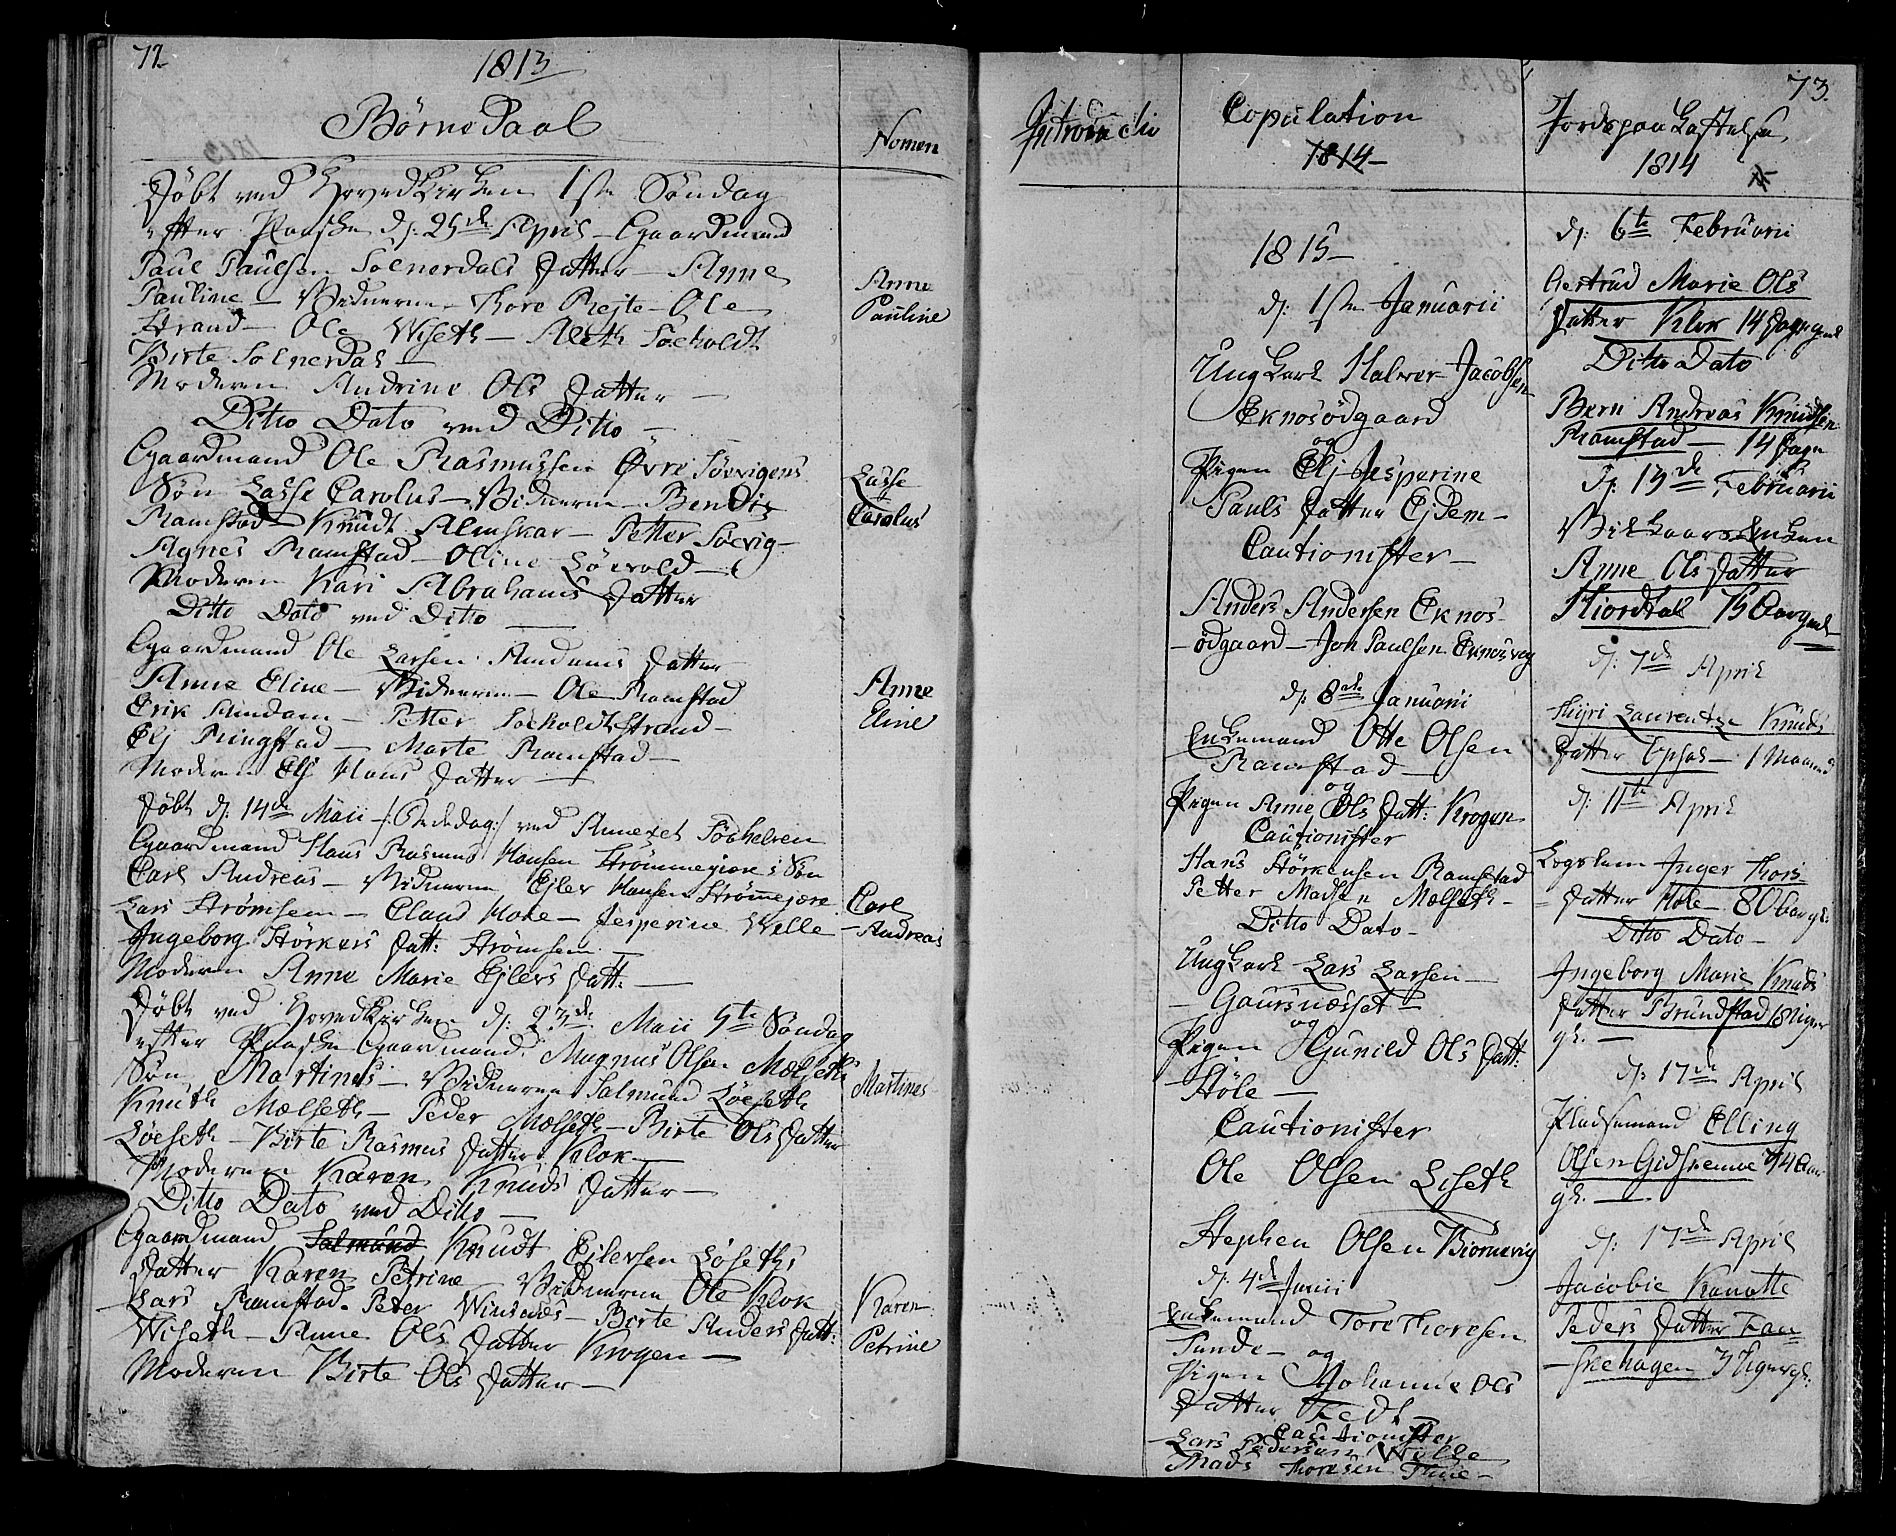 72
1813
Børne Daab
Nomen
Døbt ved Hovedkirken 1ste Søndag
efter Paaske d: 25de April - Gaardmand
Paul Paulsen Solnørdals Datter - Anne
Pauline - Vidnerne - Thore Rejte - Ole
Strand - Ole Wiseth - Aleth Søeholdt
Birte Solnørdal -
Moderen Andrine Ols Datter -
Anne
Pauline
Ditto Dato ved Ditto -
Gaardmand Ole Rasmussen Øvre Søevigens
Søn Lasse Carolus - Vidnerne - Bendix
Ramstad - Knudt Almskar - Petter Søevig -
Agnes Ramstad - Oline Søevold -
Moderen Kari Abrahams Datter
Lasse
Carolus
Ditto Dato ved Ditto -
Gaardmand Ole Larsen Andams Datter
Anne Eline - Vidnerne - Ole Ramstad
Erik Amdam - Petter Søeholdtstrand -
Elj Ringstad - Marte Ramstad -
Moderen Elj Hans Datter -
Anne
Eline
Døbt d: 14de Maii /: Bededag :/ ved Annexet Søkelven
Gaardmand Hans Rasmus Hansen Strømmegjære's Søn
Carl Andreas - Vidnerne Ejler Hansen Strømmejære
Lars Strømsem - Claus Hole - Jesperine Welle -
Ingeborg Størkers Datt: Strømsem -
Moderen Anne Marie Ejlers Datt: -
Carl
Andreas
Døbt ved Hovedkirken d: 23de Maii 5te Søndag
efter Paaske Gaardmand Magnus Olsen Mælseths
Søn Martinus - Vidnerne Salmund Løeseth
Knuth Mælseth - Peder Mælseth - Birte Ols Datter
Løeseth - Birte Rasmus Datter Klok -
Moderen Karen Knuds Datter -
Martines
Ditto Dato ved Ditto -
Gaardmand Salmund Knudt Ejlersen Løseths
Datter Karen Petrine - Vidnerne Ole Klok
Lars Ramstad - Peter Winsnes - Birte Anders Datt:
Wiseth - Anne Ols Datter Krogen -
Moderen Birte Ols Datter -
Karen
Petrine
73.
Introductio
Copulation
1814 -
1815 -
d: 1ste Januarii
Ungkarl Halvor Jacobsen
Eknosødgaard
og
Pigen Elj Jesperine
Pauls Datter Ejdem -
Cautionister -
Anders Andersen Eknos-
-ødgaard - Jon Paulsen Eknosvog
d: 8de Januarii
Enkemand Otte Olsen
Ramstad -
og
Pigen Anne Ols Datt: Krogen
Cautionister
Hans Størkensen Ramstad
Petter Madsen Mælseth -
Ditto Dato -
Ungkarl Lars Larsen -
- Gaursnæsset -
og
Pigen Gunild Ols Datt:
Høle -
Cautionister
Ole Olsen Liseth
Stephen Olsen Biørnevig
d: 4de Junii
Enkemand Tore Thoresen
Tunde - og
Pigen Johanne Ols
Datter Tedt -
Cautionister
Lars Pedersen Welle
Mads Thoresen Thue -
Jordspaa Kastelse
1814
d: 6te Februarii
Gertrud Marie Ols
Datter Klok 14 Dage gml
Ditto Dato
Bern Andreas Knudsen
Ramstad - 14 Dage
d: 13de Februarii
Vilkaars Enken
Anne Ols Datter
Hiordtal 75 Aar gml
d: 7de April
Thyri Laurentze Knuds
Datter Opsal - 1 Maaned
d: 11te April
Logslem Inger Thors
Datter Hole - 80 aar gl:
Ditto Dato -
Ingeborg Marie Knuds
Datter Brundstad 8 Uger
gl. -
d: 17de April
Pladsemand Elling
Olsen Gidskemoe 74 Aar
gl. -
d: 17de April
Jacobie Kanutte
Peders Datter Fau=
-skehagen 3 Uger gl: